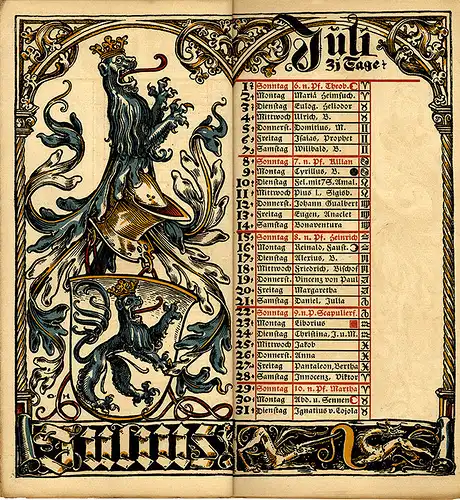 Juli
31 Tage
1 Sonntag 6. n. Pf. Theob.
2 Montag Mariä Heimsuch.
3 Dienstag Eulog. Heliodor
4 Mittwoch Ulrich, B.
5 Donnerst. Domitius, M.
6 Freitag Isaias, Prophet
7 Samstag Willbald, B.
8 Sonntag 7. n. Pf. Kilian
9 Montag Cyrillus, B.
10 Dienstag Fel. mit 7 S. Amal.
11 Mittwoch Pius I. Sigisb.
12 Donnerst. Johann Gualbert
13 Freitag Eugen, Anaclet
14 Samstag Bonaventura
15 Sonntag 8. n. Pf. Heinrich
16 Montag Reinald, Faust.
17 Dienstag Alexius, B.
18 Mittwoch Friedrich, Bischof
19 Donnerst. Vincenz von Paul
20 Freitag Margaretha
21 Samstag Daniel, Julia
22 Sonntag 9. n. P. Scapulierf.
23 Montag Liborius
24 Dienstag Christina, J. u. M.
25 Mittwoch Jakob
26 Donnerst. Anna
27 Freitag Pantaleon, Bertha
28 Samstag Innocenz, Viktor
29 Sonntag 10. n. Pf. Martha
30 Montag Abd. u. Sennen
31 Dienstag Ignatius v. Loyola
Julius